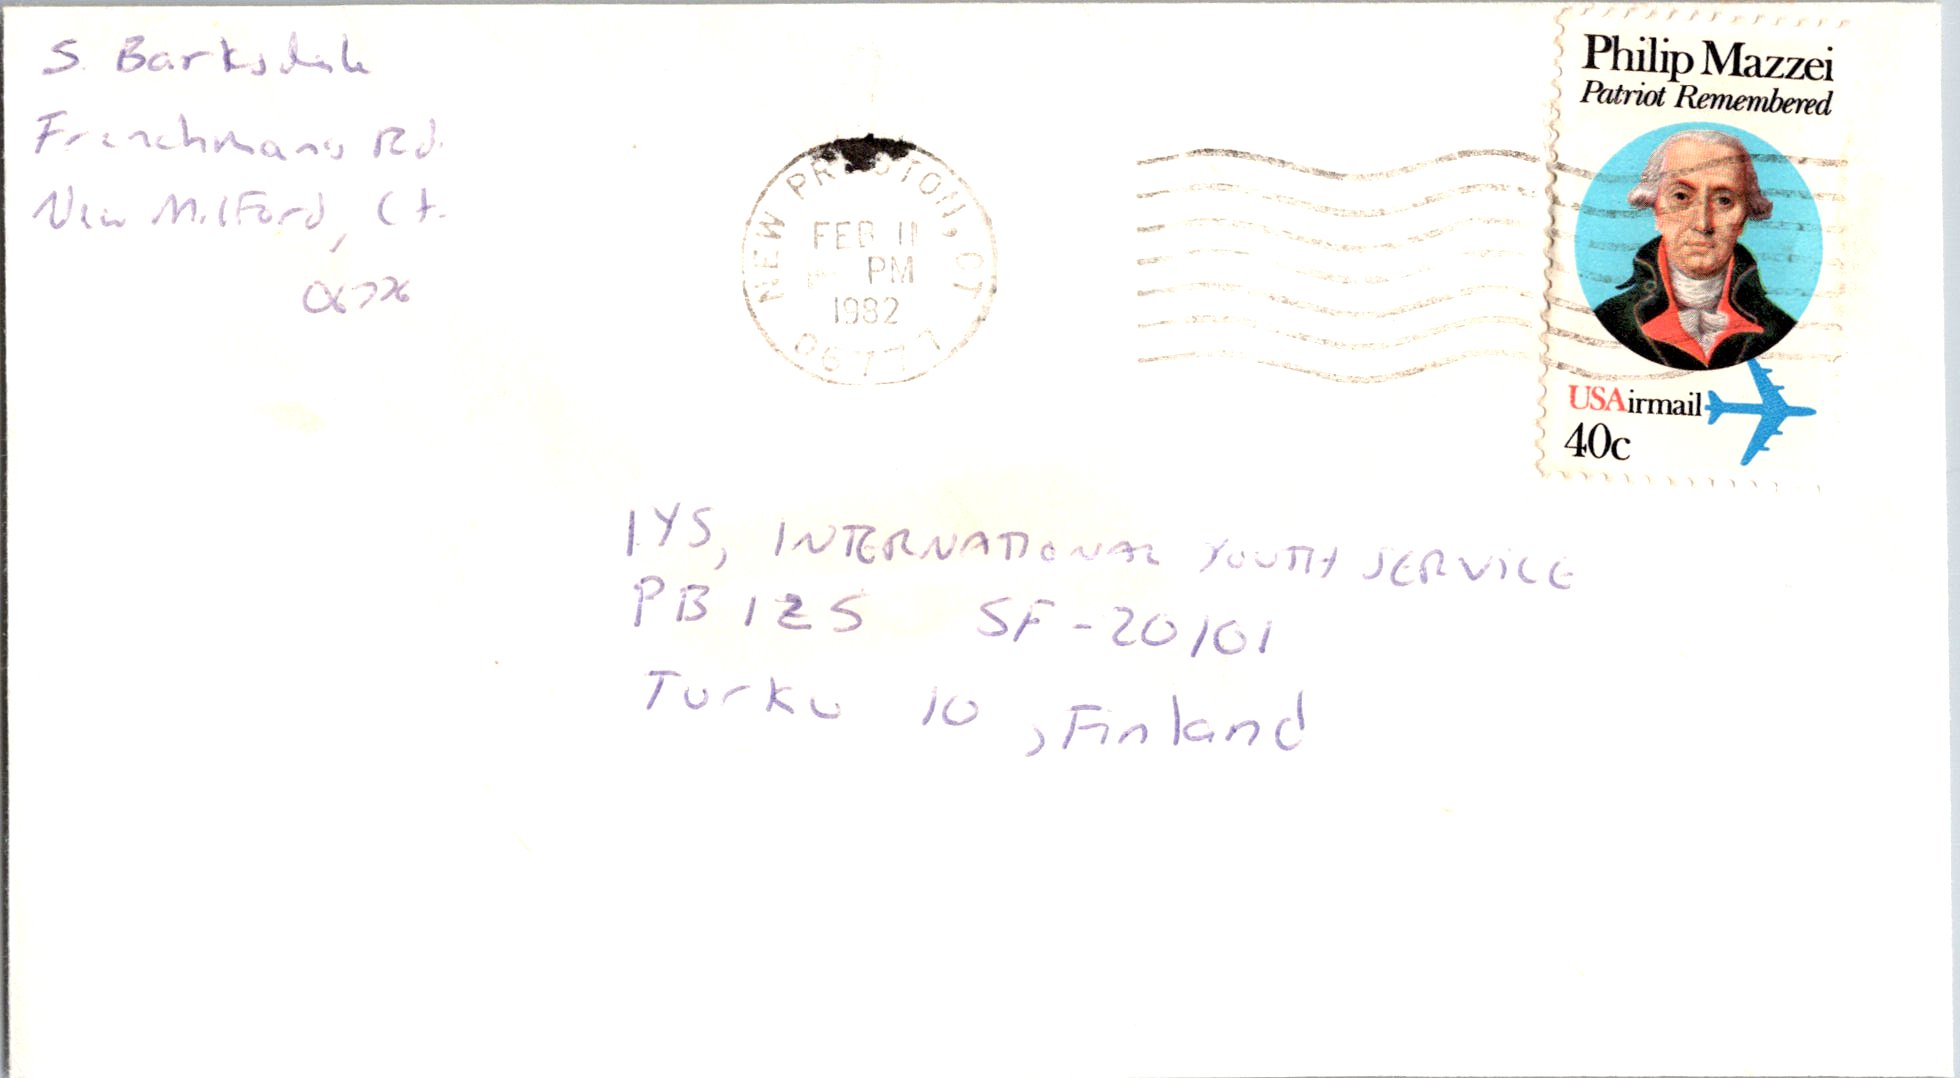 S. Barksdale
Frenchmans Rd.
New Milford, Ct.
NEW PRESTON, CT
FEB 11
PM
1982
06777
Philip Mazzei
Patriot Remembered
USAirmail
40c
IYS, INTERNATIONAL YOUTH SERVICE
PB 125 SF-20101
Turku 10, Finland